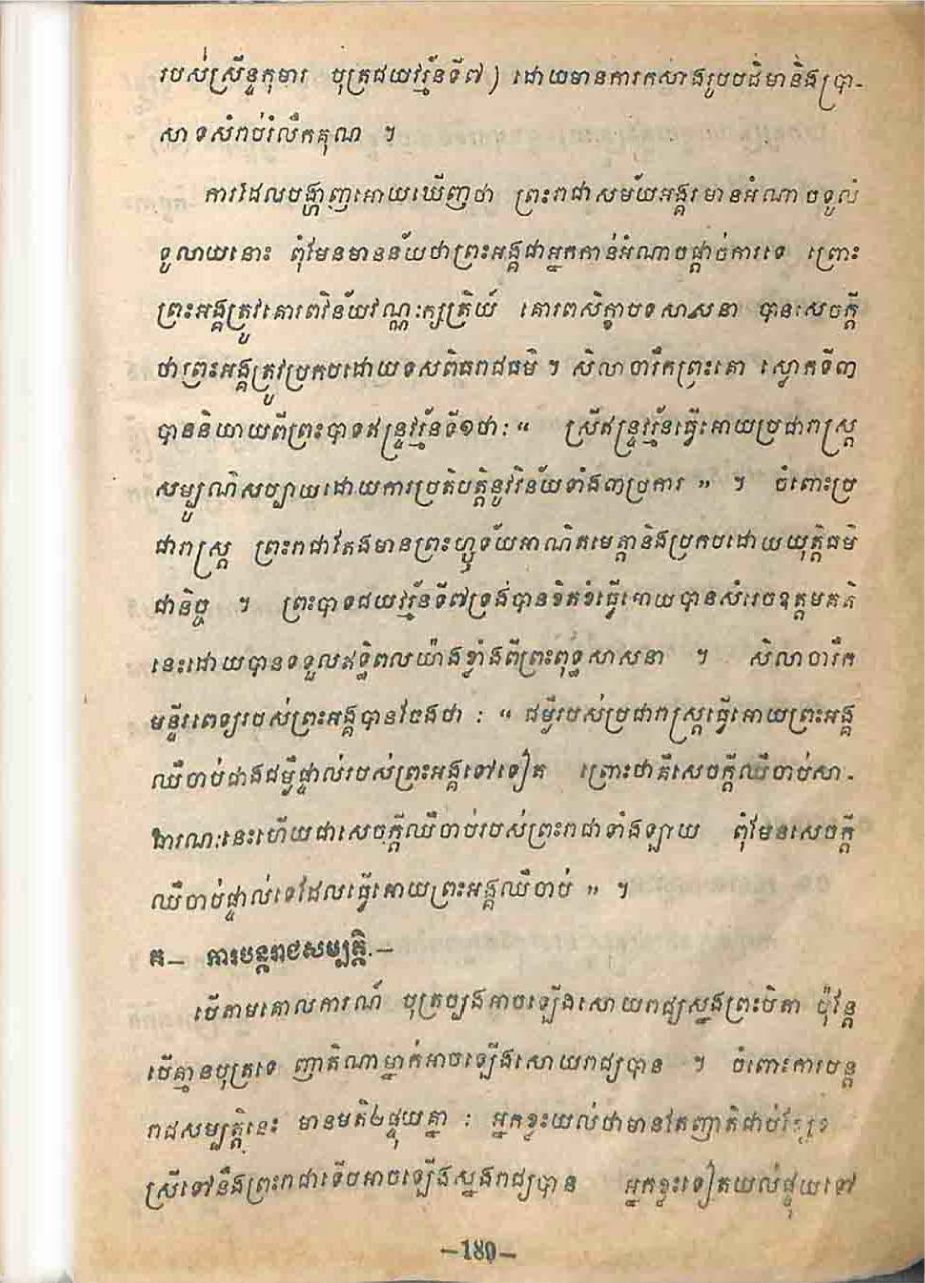 របស់ស្រីន្ទកុមារ បុត្រជយវរ្ម័នទី៧) ដោយមានការកសាងរូបបដិមានិងប្រា-
សាទសំរាប់រំលឹកគុណ ។
ការដែលបង្ហាញអោយឃើញថា ព្រះរាជាសម័យអង្គរមានអំណាចទូលំ
ទូលាយនោះ ពុំមែនមានន័យថាព្រះអង្គជាអ្នកកាន់អំណាចផ្តាច់ការទេ ព្រោះ
ព្រះអង្គត្រូវគោរពវិន័យវណ្ណៈក្សត្រិយ៍ គោរពសិក្ខាបទសាសនា បានសេចក្តី
ថាព្រះអង្គត្រូវប្រកបដោយទសពិធរាជធម៌ ។ សិលាចារឹកព្រះគោ ស្លោកទី៣
បាននិយាយពីព្រះបាទឥន្ទ្រវរ្ម័នទី១ថា: « ស្រីឥន្ទ្រវរ្ម័នធ្វើអោយប្រជារាស្ត្រ
សម្បូណ៌សប្បាយដោយការប្រតិបត្តិនូវវិន័យទាំង៣ប្រការ » ។ ចំពោះប្រ
ជារាស្ត្រ ព្រះរាជាតែងមានព្រះហ្ឫទ័យអាណិតមេត្តានិងប្រកបដោយយុត្តិធម៌
ជានិច្ច ។ ព្រះបាទជយវរ្ម័នទី៧ទ្រង់បានខិតខំធ្វើអោយបានសំរេចឧត្តមគតិ
នេះដោយបានទទួលឥទ្ធិពលយ៉ាងខ្លាំងពីព្រះពុទ្ធសាសនា ។ សិលាចារឹក
មន្ទីរពេទ្យរបស់ព្រះអង្គបានចែងថា : « ជម្ងឺរបស់ប្រជារាស្ត្រធ្វើអោយព្រះអង្គ
ឈឺចាប់ជាងជម្ងឺផ្ទាល់របស់ព្រះអង្គទៅទៀត ព្រោះថាគឺសេចក្តីឈឺចាប់សា-
ធារណៈនេះហើយជាសេចក្តីឈឺចាប់របស់ព្រះរាជាទាំងឡាយ ពុំមែនសេចក្តី
ឈឺចាប់ផ្ទាល់ទេដែលធ្វើអោយព្រះអង្គឈឺចាប់ » ។
គ— ការបន្តរាជសម្បត្តិ.—
បើតាមគោលការណ៍ បុត្រច្បងអាចឡើងសោយរាជ្យស្នងព្រះបិតា ប៉ុន្តែ
បើគ្មានបុត្រទេ ញាតិណាម្នាក់អាចឡើងសោយរាជ្យបាន ។ ចំពោះការបន្ត
រាជសម្បត្តិនេះ មានមតិ២ផ្ទុយគ្នា : អ្នកខ្លះយល់ថាមានតែញាតិជាប់ខ្សែ
ស្រីទៅនឹងព្រះរាជាទើបអាចឡើងស្នងរាជ្យបាន អ្នកខ្លះទៀតយល់ផ្ទុយទៅ
—180—